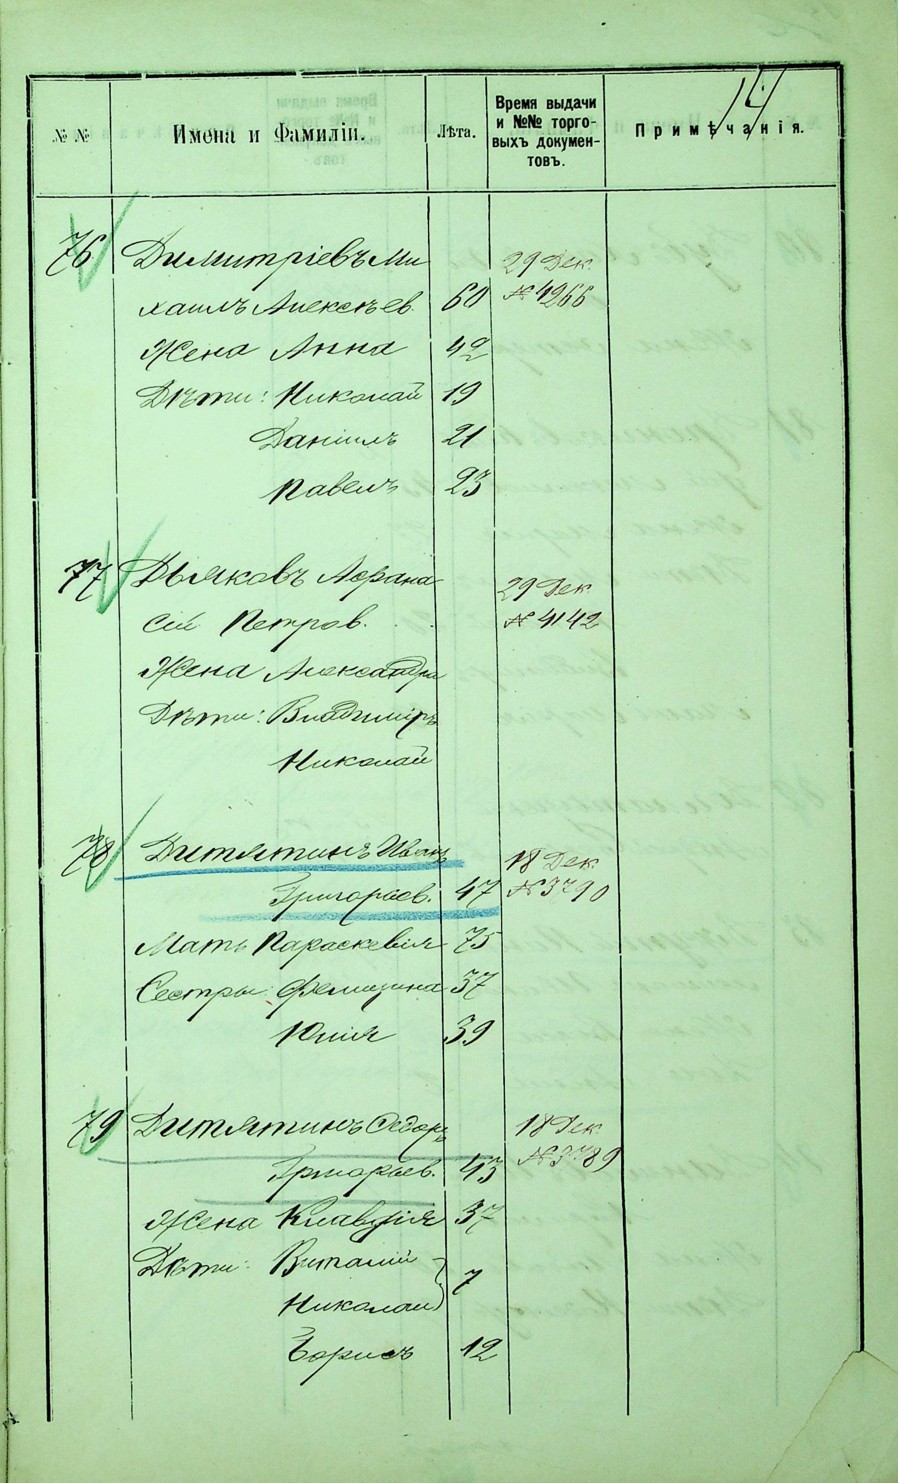 14
№ №
Имена и Фамиліи.
Лѣта.
Время выдачи и №№ торго-выхъ докумен-товъ.
Примѣчанія.
76 Димитріевъ Ми 29 Дек.
хаилъ Алексѣев. 60 № 4266
Жена Анна 42
Дѣти: Николай 19
Даніилъ 21
Павелъ 23
77 Дьяковъ Афана 29 Дек
сій Петров. № 4142
Жена Александра
Дѣти: Владиміръ
Николай
78 Дитятинъ Иванъ 18 Дек
Григорьев. 47 № 3790
Мать Параскевія 75
Сестры: Фелицина 37
Юлія 39
79 Дитятинъ Федоръ 18 Дек
Григорьев. 43 № 3789
Жена Клавдія 37
Дѣти: Виталій
Николай 7
Борисъ 12